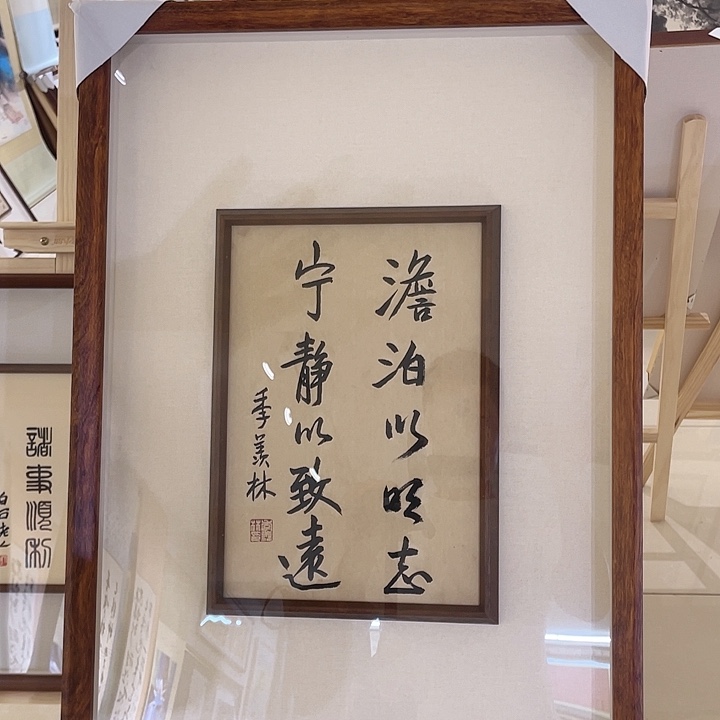 澹泊以明志
宁静以致遠
季羡林
諸事順利